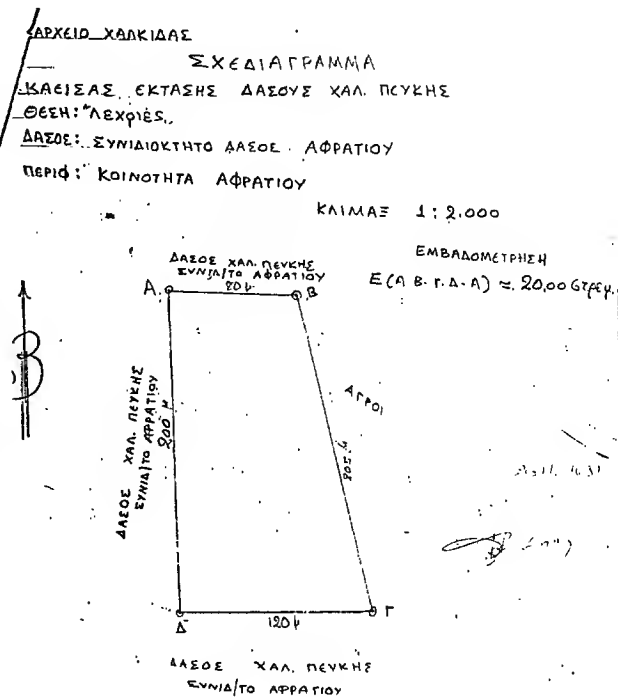 ΑΡΧΕΙΟ ΧΑΛΚΙΔΑΣ
ΣΧΕΔΙΑΓΡΑΜΜΑ
ΚΑΕΙΣΑΣ ΕΚΤΑΣΗΣ ΔΑΣΟΥΣ ΧΑΛ. ΠΕΥΚΗΣ
ΘΕΣΗ: "Λεχριές„
ΔΑΣΟΣ: ΣΥΝΙΔΙΟΚΤΗΤΟ ΔΑΣΟΣ ΑΦΡΑΤΙΟΥ
ΠΕΡΙΦ: ΚΟΙΝΟΤΗΤΑ ΑΦΡΑΤΙΟΥ
ΚΛΙΜΑΞ 1:2.000
ΕΜΒΑΔΟΜΕΤΡΗΣΗ
Ε(Α.Β.Γ.Δ.Α) ≈ 20,00 στρεμ.
ΔΑΣΟΣ ΧΑΛ. ΠΕΥΚΗΣ
ΣΥΝΙΔ/ΤΟ ΑΦΡΑΤΙΟΥ
80 μ.
Α.
Β
Β
ΔΑΣΟΣ ΧΑΛ. ΠΕΥΚΗΣ
ΣΥΝΙΔ/ΤΟ ΑΦΡΑΤΙΟΥ
200 μ
ΑΓΡΟΙ
205 μ
Δ
Γ
120 μ
ΔΑΣΟΣ ΧΑΛ. ΠΕΥΚΗΣ
ΣΥΝΙΔ/ΤΟ ΑΦΡΑΤΙΟΥ